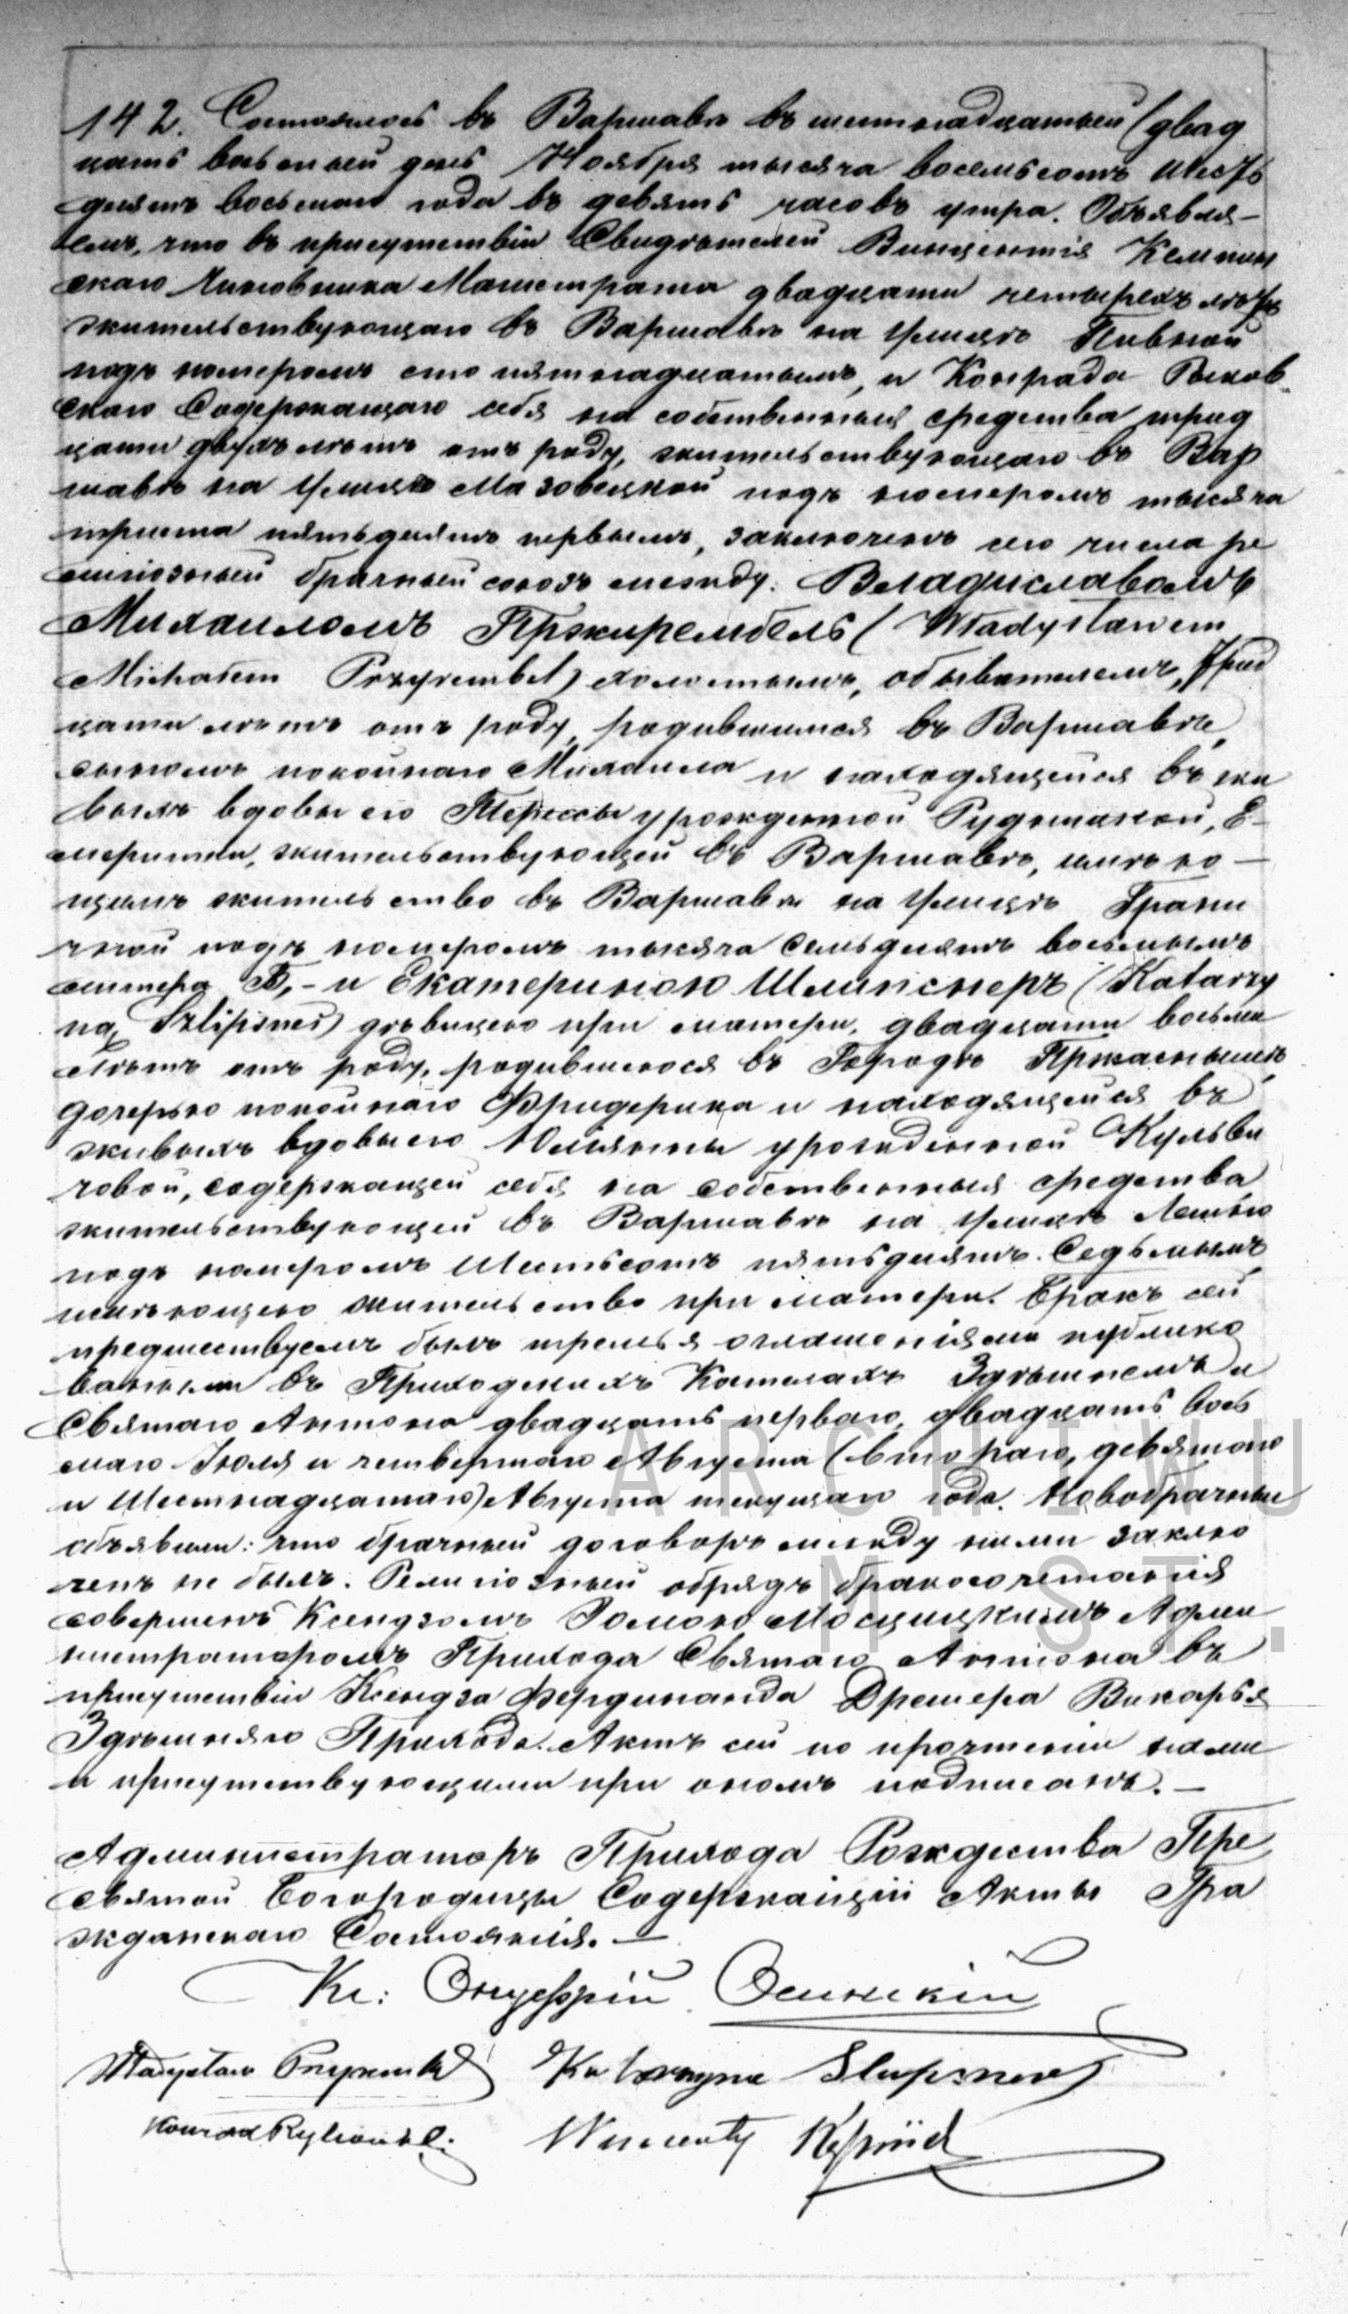 142. Состоялось въ Варшавѣ въ шестнадцатый (двад
цать восьмый день Ноября тысяча восемьсотъ шесть
десятъ восьмаго года въ девять часовъ утра. Объявля-
емъ, что въ присутствіи Свидѣтелей Винцентія Кемпин
скаго Чиновника Магистрата двадцати четырехъ лѣтъ
жительствующаго въ Варшавѣ на Улицѣ Пивной
подъ номеромъ сто пятнадцатымъ, и Конрада Рыков
скаго Содержащаго себя на собственныя средства трид
цати двухъ лѣтъ отъ роду, жительствующаго въ Вар
шавѣ на Улицѣ Мазовецкой подъ номеромъ тысяча
триста пятьдесятъ первымъ, заключенъ сего числа ре
лигіозный брачный союзъ между: Владиславомъ
Михаиломъ Пржирембель (Władysławem
Michałem Przyrembel) холостымъ, обывателемъ, трид
цати лѣтъ отъ роду, родившимся въ Варшавѣ,
сыномъ покойнаго Михаила и находящейся въ жи
выхъ вдовы его Терессы урожденной Е-
меритки, жительствующей въ Варшавѣ, имѣю-
щимъ жительство въ Варшавѣ на Улицѣ Грани
чной подъ номеромъ тысяча семьдесятъ восьмымъ
литера Б,- и Екатериною Шлипснеръ (Katarzy
ną Szlipsner) дѣвицею при матери, двадцати восьми
лѣтъ отъ роду, родившеюся въ Городѣ Пржаснышѣ,
дочерью покойнаго Фридерика и находящейся въ
живыхъ вдовы его Юліянны урожденной Кульви
човой, содержащей себя на собственныя средства
жительствующей въ Варшавѣ на Улицѣ Лешно
подъ номеромъ Шестьсотъ пятьдесятъ Седьмымъ,
имѣющею жительство при матери. Бракъ сей
предшествуемъ былъ тремья оглашеніями публико
ванными въ Приходскихъ Костелахъ Здѣшнемъ и
Святаго Антонія двадцать перваго, двадцать вось
маго Іюля и четвертаго Августа (втораго, девятаго
и Шестнадцатаго) Августа текущаго года. Новобрачные
объявили: что брачный договоръ между ними заклю
ченъ не былъ. Религіозный обрядъ бракосочетанія
совершенъ Ксендзомъ Мосцицкимъ Адми
нистраторомъ Прихода Святаго Антонія въ
присутствіи Ксендза Фердинанда Дрешера Викарья
Здѣшняго Прихода. Актъ сей по прочтеніи нами
и присутствующими при ономъ подписанъ.-
Администраторъ Прихода Рождества Пре
святой Богородицы Содержащій Акты Гра
жданскаго Состоянія.-
Кс: Онуфрій Осинскій
Władysław Przyrembel Katarzyna Szlipsner
Konrad Rykowski Wincenty
ARCHIWU
M ST.